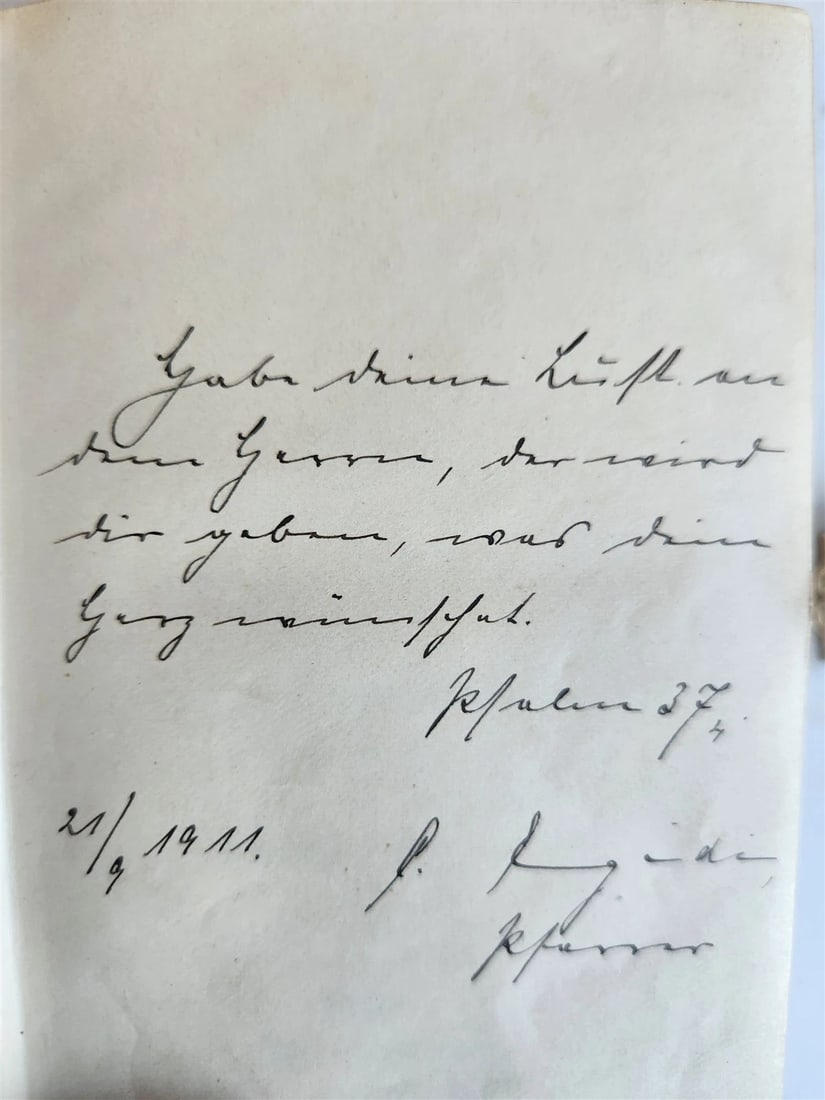 Habe deine Lust an
dem Herrn, der wird
dir geben, was dein
Herz wünschet.
Psalm 37,4.
21/9 1911.
Pfarrer